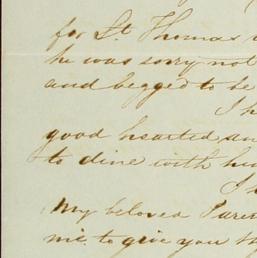 for St. Thomas
he was sorry not
and begged to be
I h
good hearted an
to dine with him
I
My beloved Paren
me to give you th